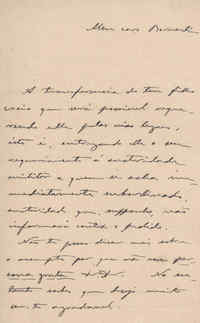 Meu caro Bernardi
A transferencia de teu filho
creio que será possivel reque-
rendo elle pelas vias legaes,
isto é, entregando elle o seu
requerimento á autoridade
militar a quem se acha im-
mediatamente subordinado,
autoridade que, supponho, não
informará contra o pedido.
Não te posso dizer mais sobre
o assumpto por que não sou per-
sona grata
No en-
tanto sabes que desejo muito
ser-te agradavel.